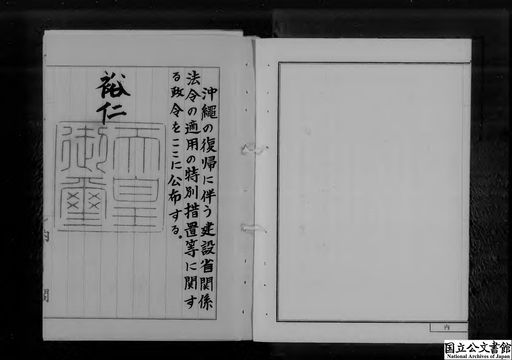 沖縄の復帰に伴う建設省関係
法令の適用の特別措置等に関す
る政令をここに公布する。
裕仁
天皇
御璽
内
閣
内
国立公文書館
National Archives of Japan